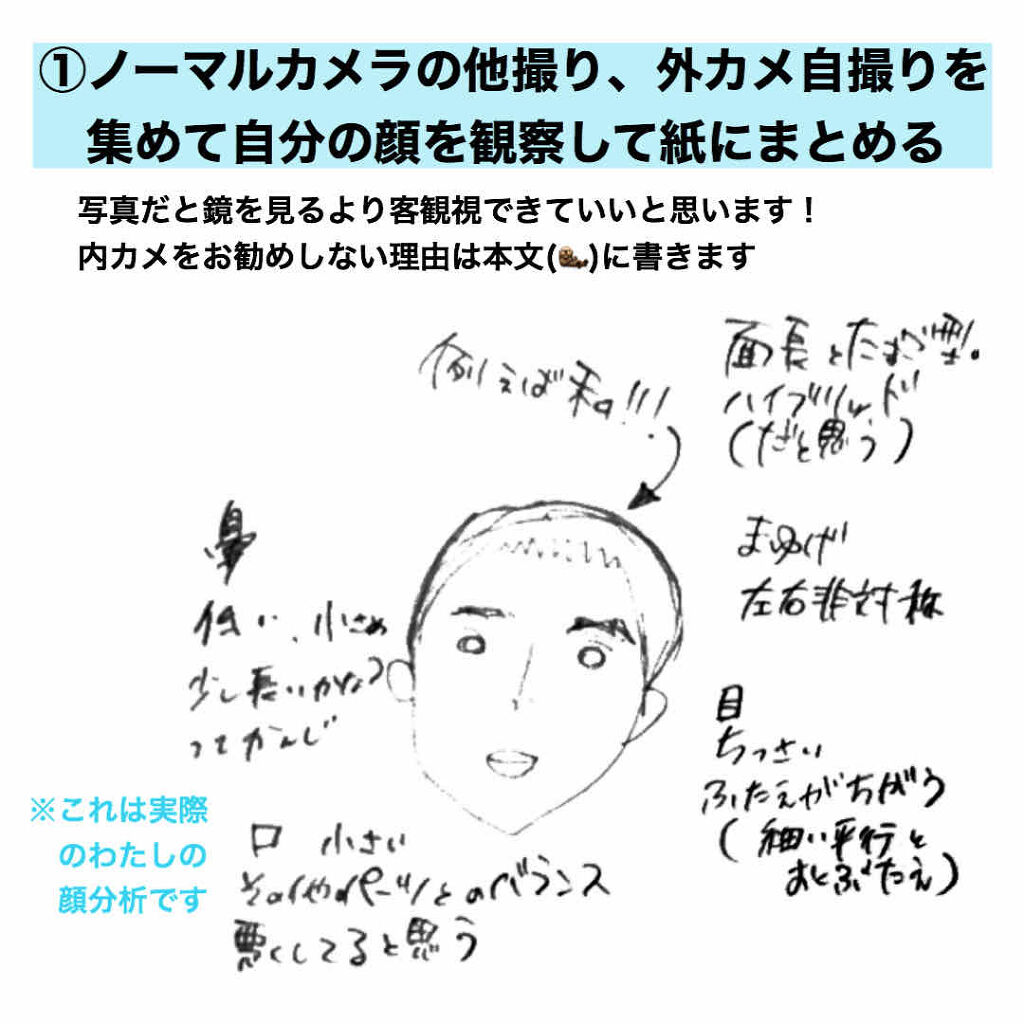 ①ノーマルカメラの他撮り、外カメ自撮りを
集めて自分の顔を観察して紙にまとめる
写真だと鏡を見るより客観視できていいと思います！
内カメをお勧めしない理由は本文(🦦)に書きます
例えば私!!!
面長とたまご型。
ハイブリッド
(だと思う)
まゆげ
左右非対称
鼻
低い、小さめ
少し長いかな？
ってかんじ
目
ちっさい
ふたえがちがう
(細い平行と
おくぶたえ)
※これは実際
のわたしの
顔分析です
口 小さい
その他のパーツとのバランス
悪くしてると思う